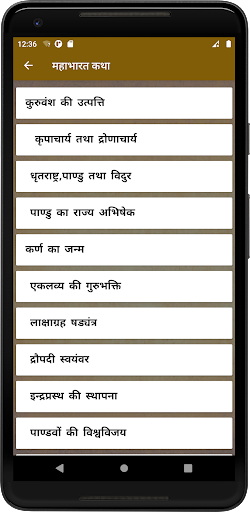 12:36
महाभारत कथा
कुरुवंश की उत्पत्ति
कृपाचार्य तथा द्रोणाचार्य
धृतराष्ट्र,पाण्डु तथा विदुर
पाण्डु का राज्य अभिषेक
कर्ण का जन्म
एकलव्य की गुरुभक्ति
लाक्षाग्रह षड्यंत्र
द्रौपदी स्वयंवर
इन्द्रप्रस्थ की स्थापना
पाण्डवों की विश्वविजय